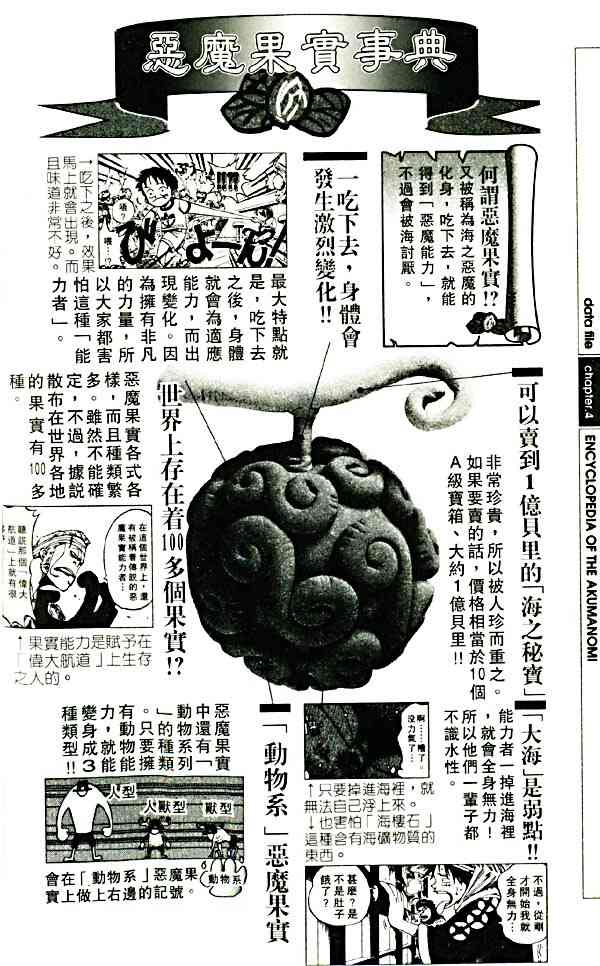 惡魔果實事典
data file
chapter.4
ENCYCLOPEDIA OF THE AKUMANOMI
何謂惡魔果實!?
又被稱為海之惡魔的
化身，吃下去，就能
得到「惡魔能力」，
不過會被海討厭。
一吃下去，身體會
發生激烈變化!!
最大特點就
是，吃下去
之後，身體
就會為適應
能力，而出
現變化。因
為擁有非凡
的力量，所
以大家都害
怕這種「能
力者」。
→吃下之後，效果
馬上就會出現。而
且味道非常不好。
びよーん!
可以賣到1億貝里的「海之秘寶」
非常珍貴，所以被人珍而重之。
如果要賣的話，價格相當於10個
A級寶箱、大約1億貝里!!
世界上存在着100多個果實!?
惡魔果實各式各
樣，而且種類繁
多。雖然不能確
定，不過，據說
散布在世界各地
的果實有100多
種。
在這個世界上，還
有被稱着傳說的惡
魔果實能力者…
聽說那個「偉大
航道」上就有很
↑果實能力是賦予在
「偉大航道」上生存
之人的。
「大海」是弱點!!
能力者一掉進海裡
，就會全身無力！
所以他們一輩子都
不識水性。
啊……糟了。
沒力氣了…
↑只要掉進海裡，就
無法自己浮上來。
↓也害怕「海樓石」
這種含有海礦物質的
東西。
不過，從剛
才開始我就
全身無力…
甚麼？是
不是肚子
餓了？
「動物系」惡魔果實
惡魔果實
中還有「
動物系列
」的種類
。只要擁
有動物能
力，就能
變身成3
種類型!!
人型
人獸型
獸型
動物系
會在「動物系」惡魔果
實上做上右邊的記號。